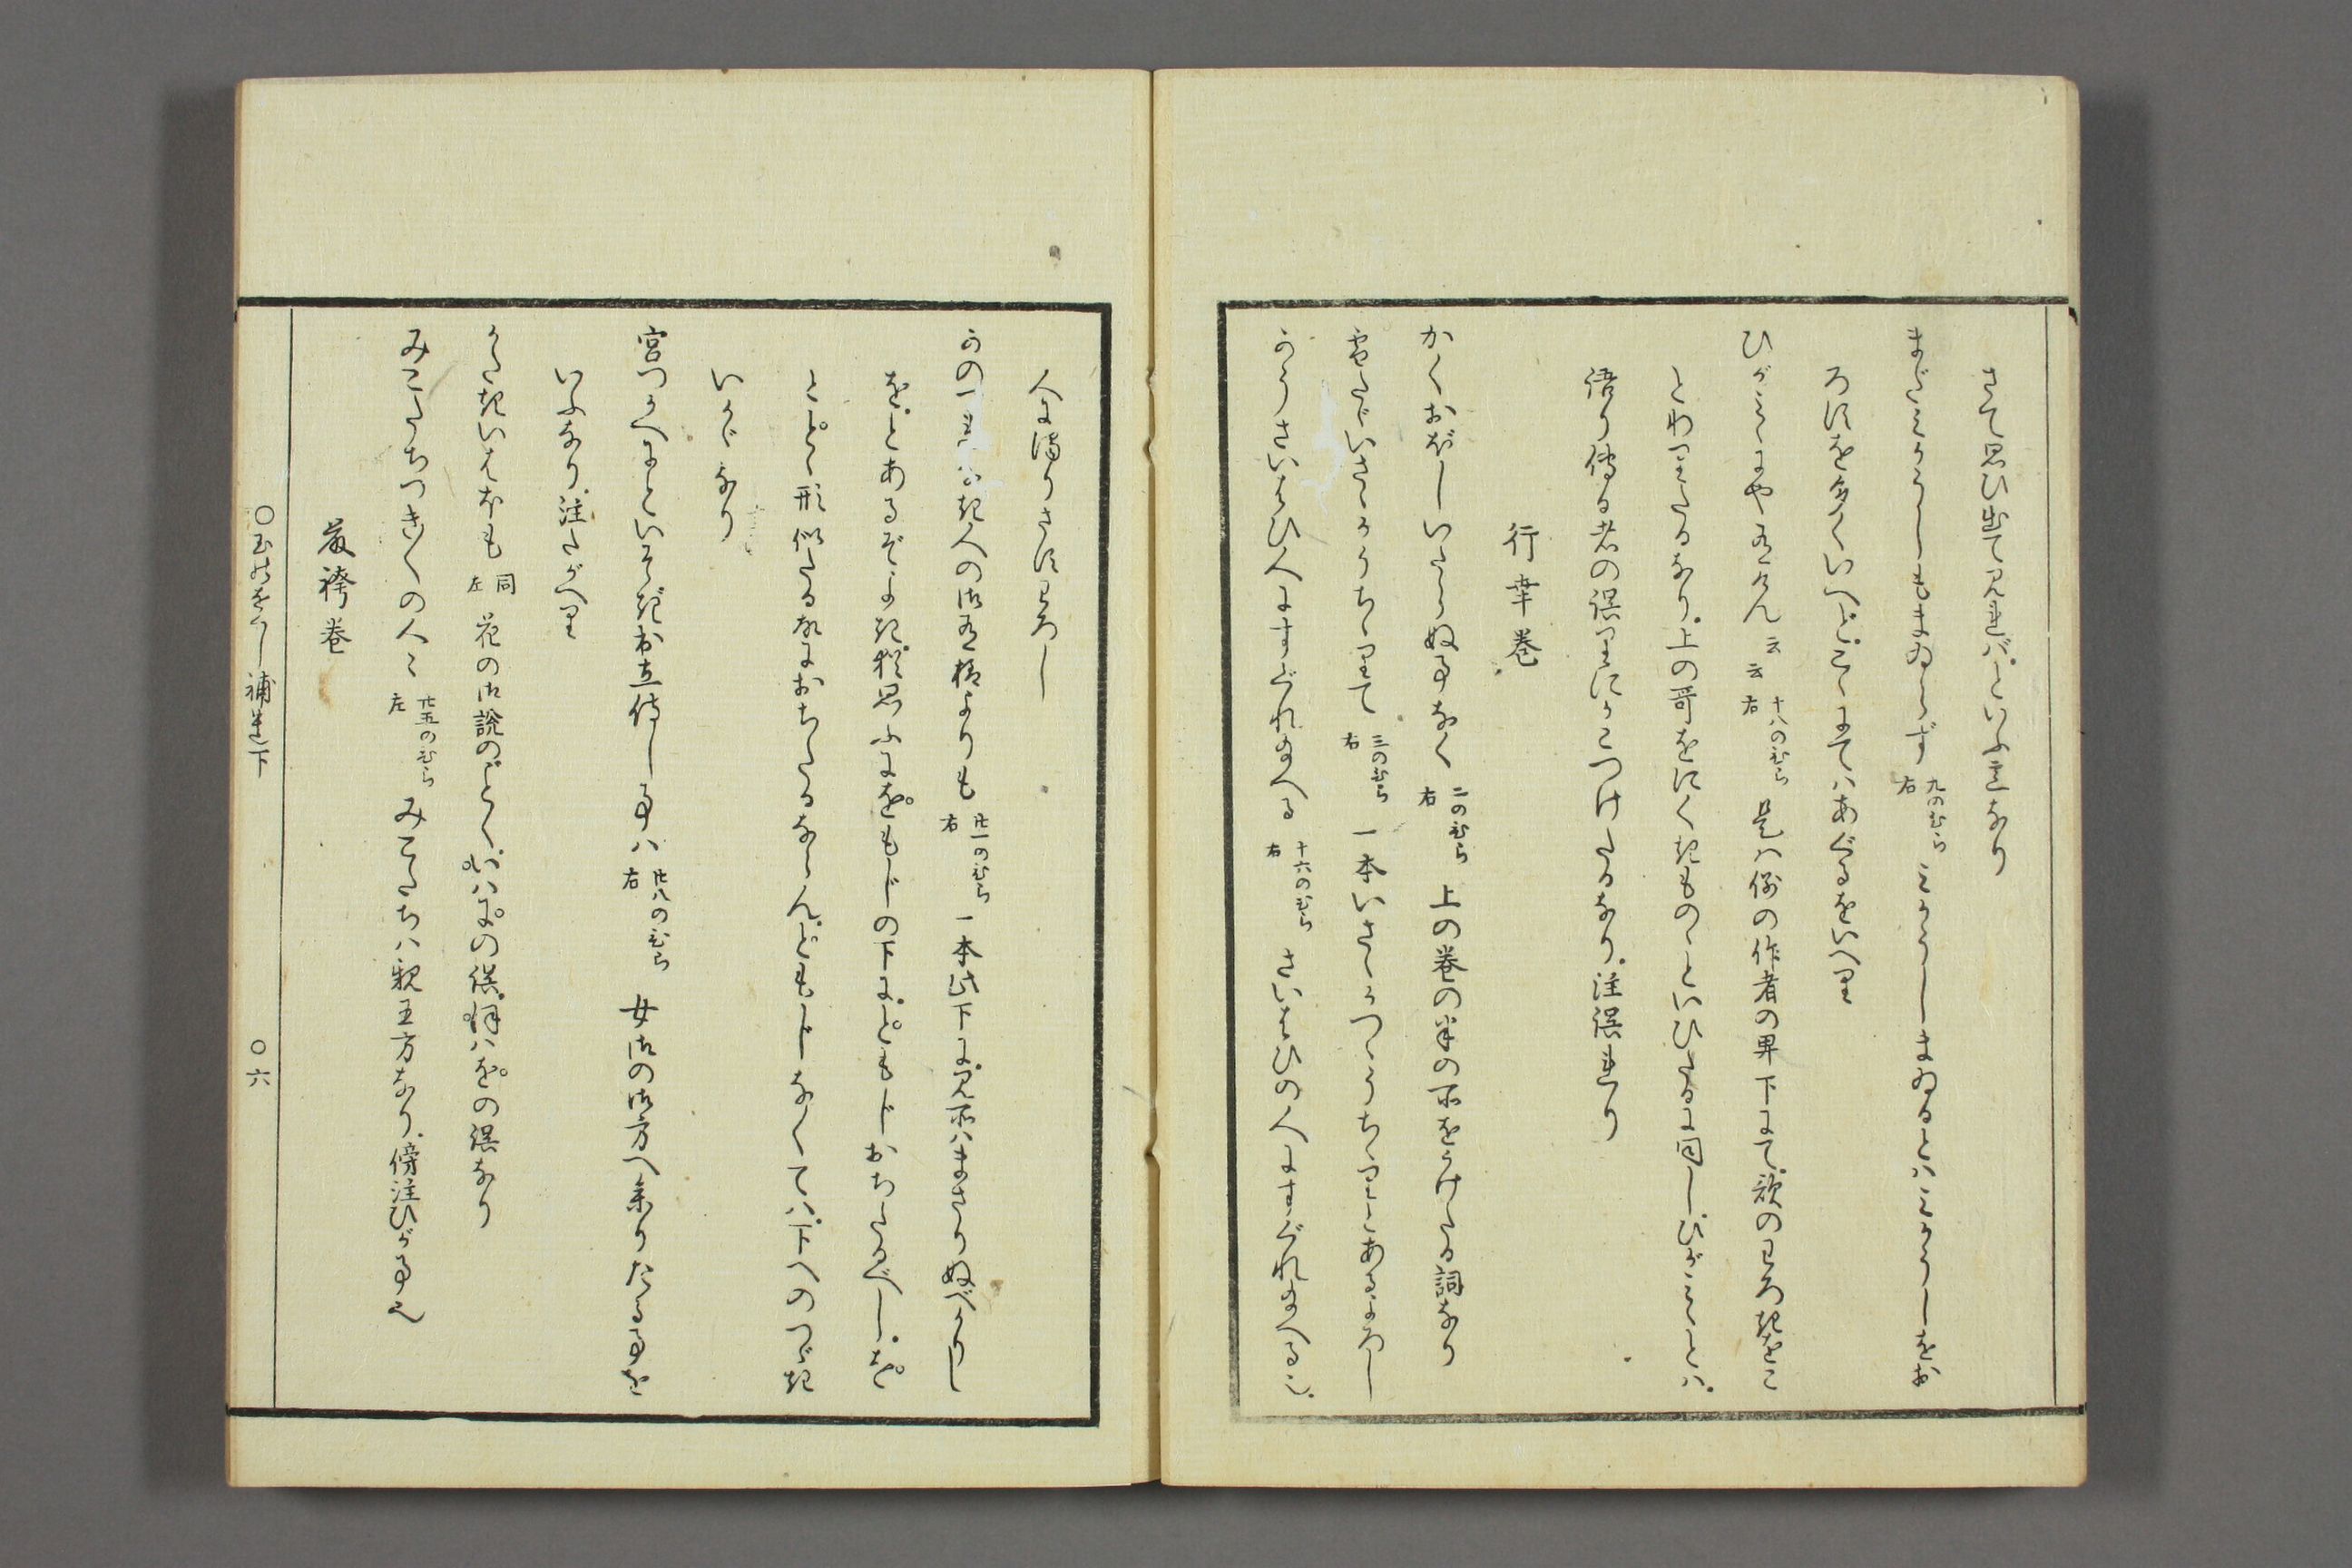 さて思ひ出て見れバといふ意なり
まだミかうしもまゐらず 九のひら右 ミかうしまゐるとハミかうしをお
ろすを多くいへどこゝにてハあぐるをいへり
ひがことにや有けん云云 十八のひら右 是ハ例の作者の卑下にて歌のわろきをこ
とわりたるなり上の哥をにくきものゝといひたるに同しひがことゝハ
語り傳る者の誤りにかこつけたるなり注誤れり
行幸巻
かくおぼしいたらぬ事なく 二のひら右 上の巻の末の所をうけたる詞なり
雪たゞいさゝかうちゝりて 三のひら右 一本いさゝかづゝうちゝりとあるよろし
かうさいはひ人にすぐれ給へる 十六のひら右 さいはひの人にすぐれ給へる也
人に濁りさすわろし
かの一 き人の御有様よりも 廿一のひら右 一本此下に見所ハまさりぬべかりし
をとあるぞよき猶思ふにをもじの下にどもじおちたるべしをと
とゞ形似たる故におちたるならんどもじなくてハ下へのつゞき
いかゞなり
宮づかへにといそぎ出立侍し事ハ 廿八のひら右 女御の御方へ参りたる事を
いふなり注たがへり
かたきいはほも 同左 花の御説のごとくいハにの誤ほハをの誤なり
みこたちつき〳〵の人〻 廿五のひら左 みこたちハ親王方なり傍注ひが事也
藤袴巻
○玉のをくし補遺下 ○六